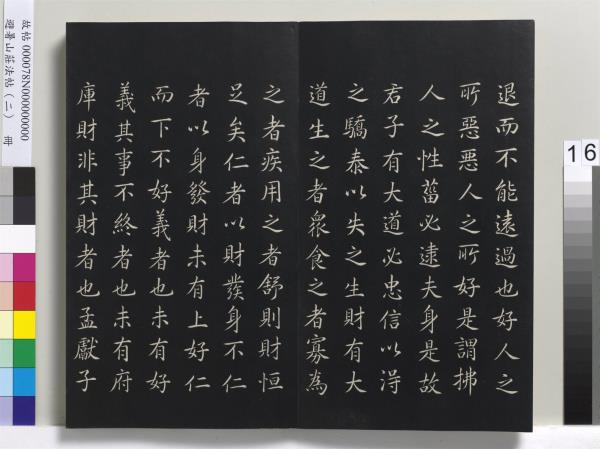 退而不能遠過也好人之
所惡惡人之所好是謂拂
人之性菑必逮夫身是故
君子有大道必忠信以淂
之驕泰以失之生財有大
道生之者衆食之者寡為
之者疾用之者舒則財恒
足矣仁者以財發身不仁
者以身發財未有上好仁
而下不好義者也未有好
義其事不終者也未有府
庫財非其財者也孟獻子
故帖000078N000000000
避暑山莊法帖(二) 冊
16